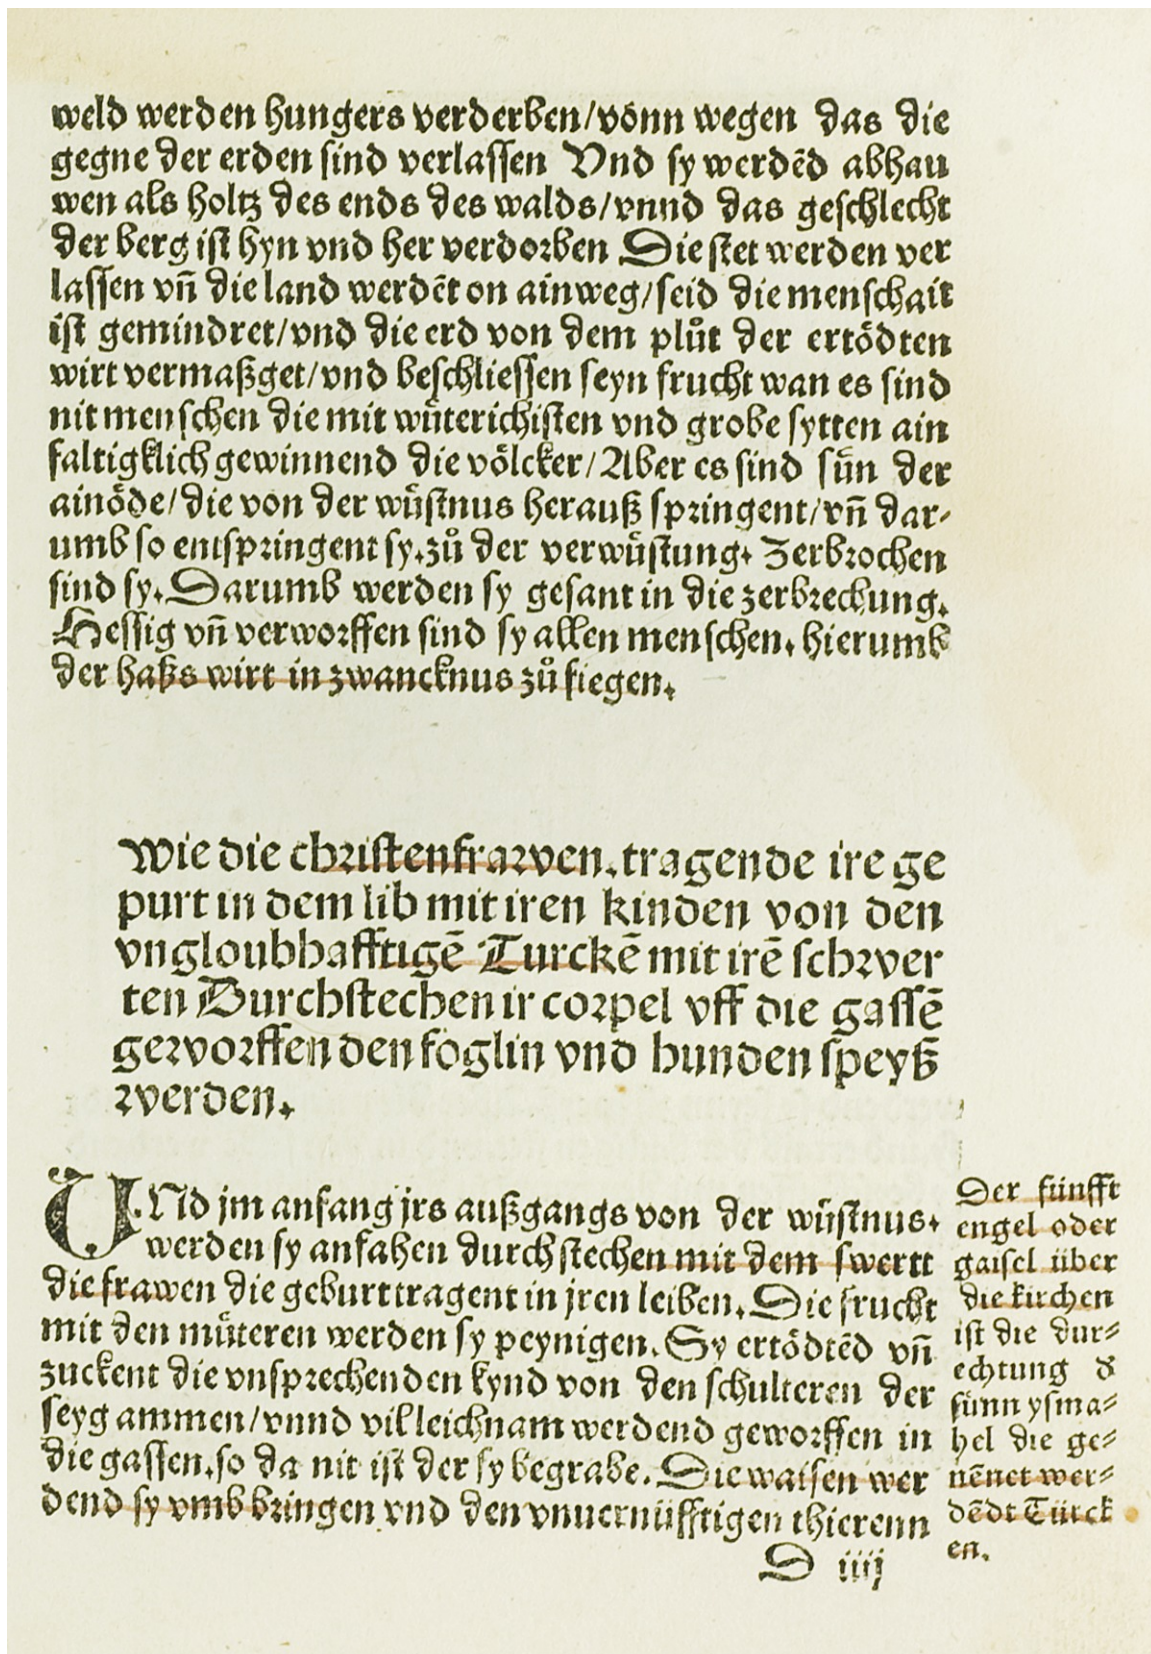 weld werden hungers verderben/vonn wegen das die
gegne der erden sind verlassen Vnd sy werdẽd abhau
wen als holtz des ends des walds/vnnd das geschlecht
der berg ist hyn vnd her verdorben Die stet werden ver
lassen vñ die land werdẽt on ainweg/seid die menschait
ist gemindret/vnd die erd von dem plůt der ertödten
wirt vermaßget/vnd beschliessen seyn frucht wan es sind
nit menschen die mit wüterichisten vnd grobe sytten ain
faltigklich gewinnend die völcker/Aber es sind sün der
ainöde/die von der wüstnus herauß springent/vñ dar-
umb so entspringent sy.zů der verwüstung. Zerbrochen
sind sy. Darumb werden sy gesant in die zerbrechung.
Hessig vñ verworffen sind sy allen menschen. hierumb
der haßs wirt in zwancknus zůfiegen.
Wie die christenfrawen.tragende ire ge
purt in dem lib mit iren kinden von den
vngloubhafftigẽ Turckẽ mit irẽ schwer
ten Durchstechen ir corpel vff die gassẽ
geworffen den föglin vnd hunden speyß
werden.
UNd jm anfang jrs außgangs von der wüstnus.
werden sy anfahen durchstechen mit dem swertt
die frawen die geburt tragent in jren leiben. Die frucht
mit den müteren werden sy peynigen. Sy ertödtẽd vñ
zuckent die vnsprechenden kynd von den schulteren der
seyg ammen/vnnd vil leichnam werdend geworffen in
die gassen.so da nit ist der sy begrabe. Die waisen wer
dend sy vmb bringen vnd den vnuernüfftigen thierenn
D iiij
Der fünfft
engel oder
gaisel über
die kirchen
ist die dur-
echtung d'
sünn ysma-
hel die ge-
nẽnet wer-
dẽdt Türck
en.